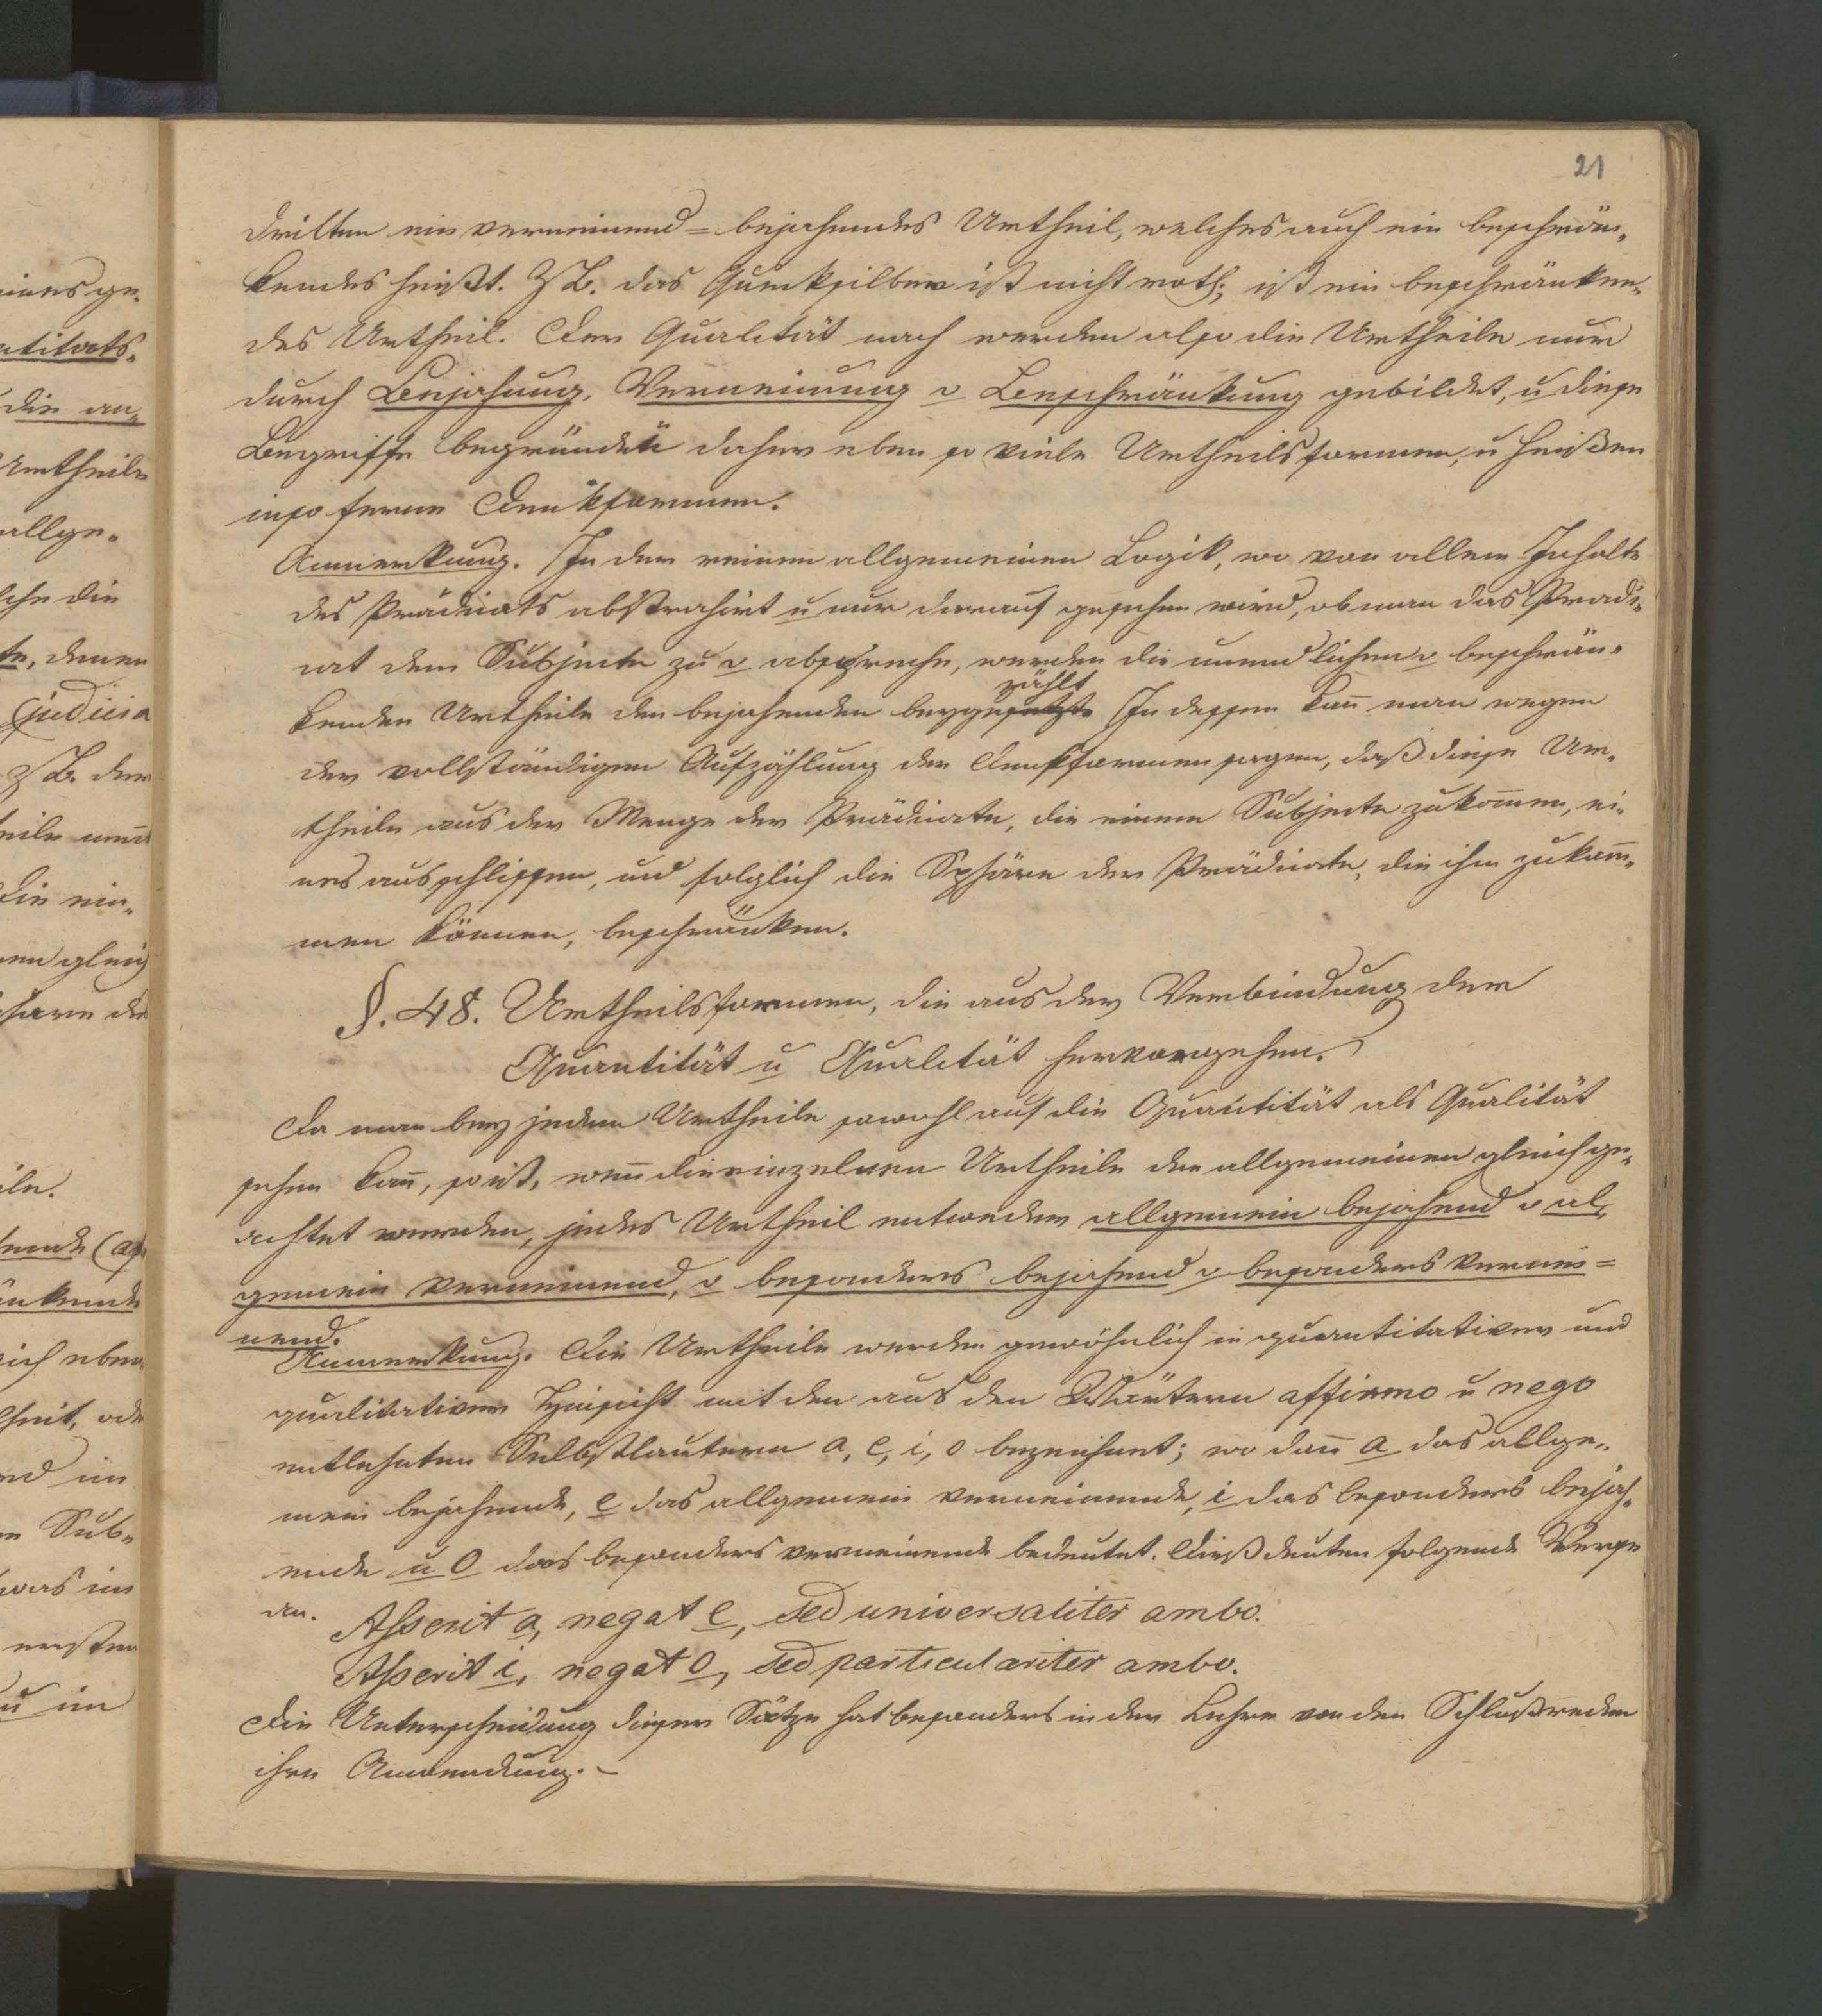 21
dritten ein verneinend=bejahendes Urtheil, welches auch ein beschrän„
kendes heißt. Z B. das Queksilber ist nicht roth; ist ein beschränken„
des Urtheil. Der Qualität nach werden also die Urtheile nur
durch Bejahung, Verneinung o Beschränkung gebildet, u diese
Begriffe begründen daher eben so viele Urtheilsformen, u heißen
in so ferne Denkformen.
Anmerkung. In der reinen allgemeinen Logik, wo von allem Inhalte
des Prädicats abstrahirt u nur darauf gesehen wird, ob man das Prädi„
cat dem Subjecte zu o abspreche, werden die unendlichen o beschrän„
zählt
kenden Urtheile den bejahenden beygesetzt. In dessen kan̄ man wegen
der vollständigen Aufzählung der Denkformen sagen, daß diese Ur„
theile aus der Menge der Prädicate, die einem Subjecte zukom̄en, ei„
nes ausschliessen, und folglich die Sphäre der Prädicate, die ihm zukom̄„
men können, beschränken.
§. 48. Urtheilsformen, die aus der Verbindung der
Quantität u Qualität hervorgehen.
Da man bey jedem Urtheile sowohl auf die Quantität als Qualität
sehen kan̄, so ist, wen̄ die einzelnen Urtheile den allgemeinen gleich ge„
achtet werden, jedes Urtheil entweder allgemein bejahend o al„
gemein verneinend, o besonders bejahend o besonders vernei=
nend.
Anmerkung. Die Urtheile werden gewöhnlich in quantitativer und
qualitativer Hinsicht mit den aus den Wörtern affirmo u nego
entlehnten Selbstlautern a, e, i, o bezeichnet; wo dan̄ a das allge„
mein bejahende, e das allgemein verneinende, i das besonders bejah„
ende u o das besonders verneinende bedeutet. Dieß deuten folgende Verse
an.
Asserit a, negat e, sed universaliter ambo.
Asserit i, negat o, sed particulariter ambo.
Die Unterscheidung dieser Sätze hat besonders in der Lehre von den Schlußreden
ihre Anwendung. –